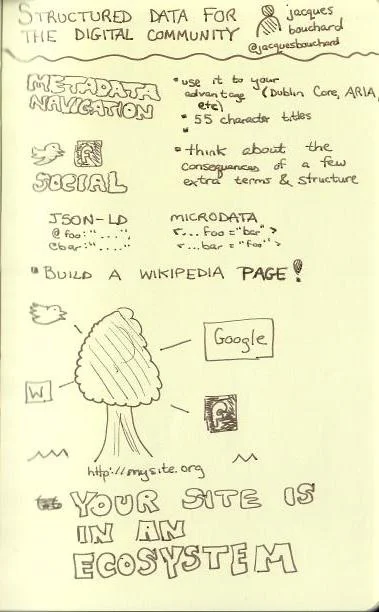 STRUCTURED DATA FOR
THE DIGITAL COMMUNITY
jacques
bouchard
@jacquesbouchard
METADATA
NAVIGATION
• use it to your
advantage (Dublin Core, ARIA,
etc)
• 55 character titles
f
SOCIAL
• think about the
consequences of a few
extra terms & structure
JSON-LD
@foo:"....",
@bar:"...."
MICRODATA
<... foo="bar" >
<... bar = "foo" >
• BUILD A WIKIPEDIA PAGE!
Google
W
f
http://mysite.org
YOUR SITE IS
IN AN
ECOSYSTEM